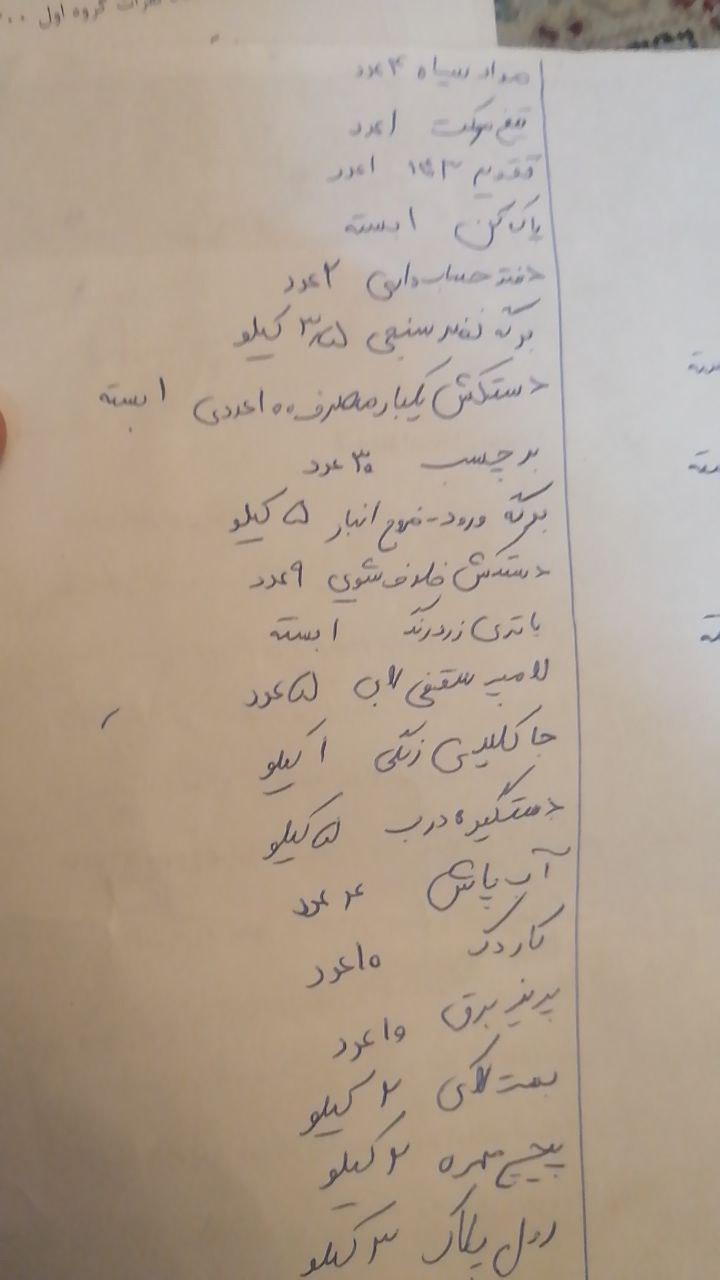 گروه اول
مداد سیاه ۳ عدد
تیغ موکت ۱ عدد
تقویم ۱۴۰۳ ۱ عدد
پاک کن ۱ بسته
دفتر حسابداری ۲ عدد
برگه نظرسنجی ۳/۵ کیلو
دستکش یکبار مصرف ۱۰۰ عددی ۱ بسته
برچسب ۳۰ عدد
برگه ورود - خروج انبار ۵ کیلو
دستکش ظرف شوی ۹ عدد
باتری زرد رنگ ۱ بسته
لامپ سقفی لابی ۵ عدد
جا کلیدی زنگی ۱ کیلو
دستگیره درب ۵ کیلو
آب پاش ۴ عدد
کاردک ۱۰ عدد
پریز برق ۱۰ عدد
بست کمربندی ۲ کیلو
پیچ مهره ۲ کیلو
رول پلاک ۳ کیلو